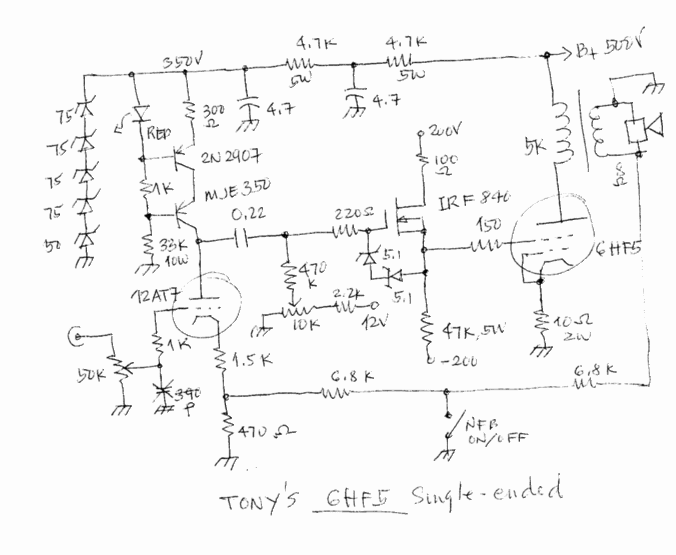 4.7K
4.7K
B+ 500V
350V
5W
5W
75
75
75
75
50
RED
300
Ω
4.7
4.7
2N2907
1K
MJE350
33K
10W
0.22
200V
100
Ω
IRF840
5K
8
Ω
220Ω
150
6HF5
5.1
5.1
470
K
2.2K
10K
12V
12AT7
47K, 5W
-200
10Ω
2W
1K
50K
390
P
1.5K
6.8K
6.8K
470 Ω
NFB
ON/OFF
TONY'S 6HF5 Single-ended